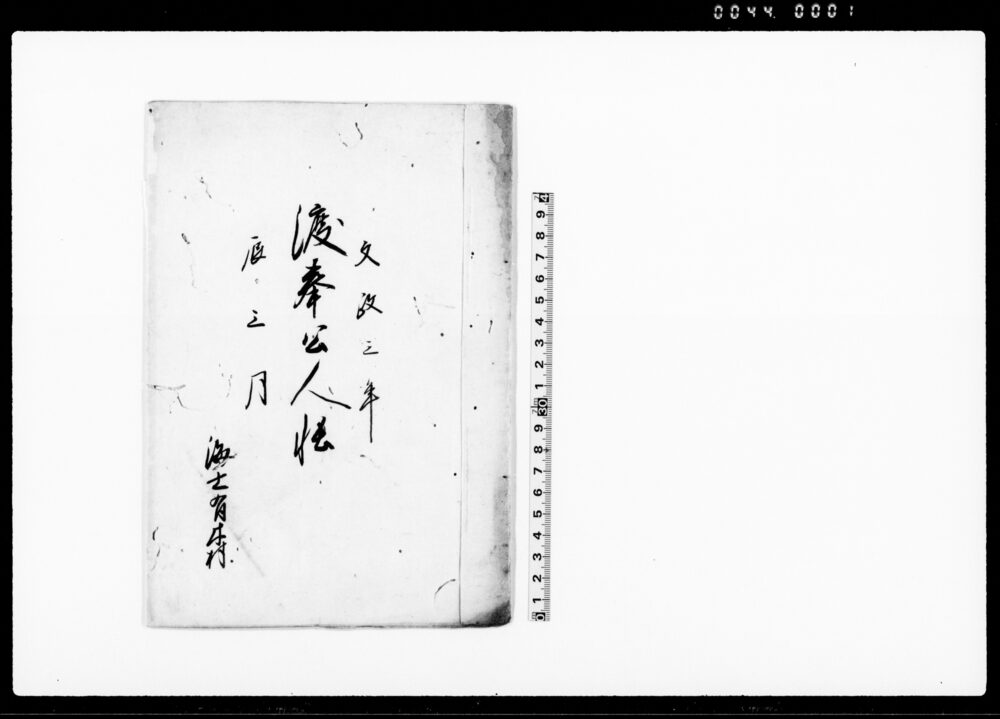 0044 0001
文政三年
渡奉公人帳
辰三月
海士有木村
0 1 2 3 4 5 6 7 8 9 30 1 2 3 4 5 6 7 8 9 4